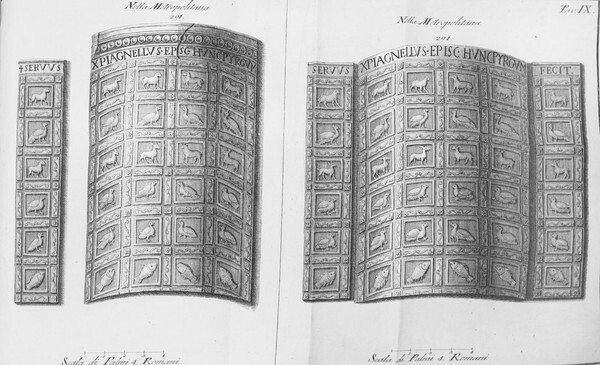 Nella Metropolitana
291.
+ SERVVS
XPI AGNELLVS·EPISC·HVNC PYRGVM
Scala di Palmi 4. Romani
Nella Metropolitana
Tav. IX.
291.
SERVVS
XPI AGNELLVS·EPISC·HVNC PYRGVM
FECIT.
Scala di Palmi 4. Romani